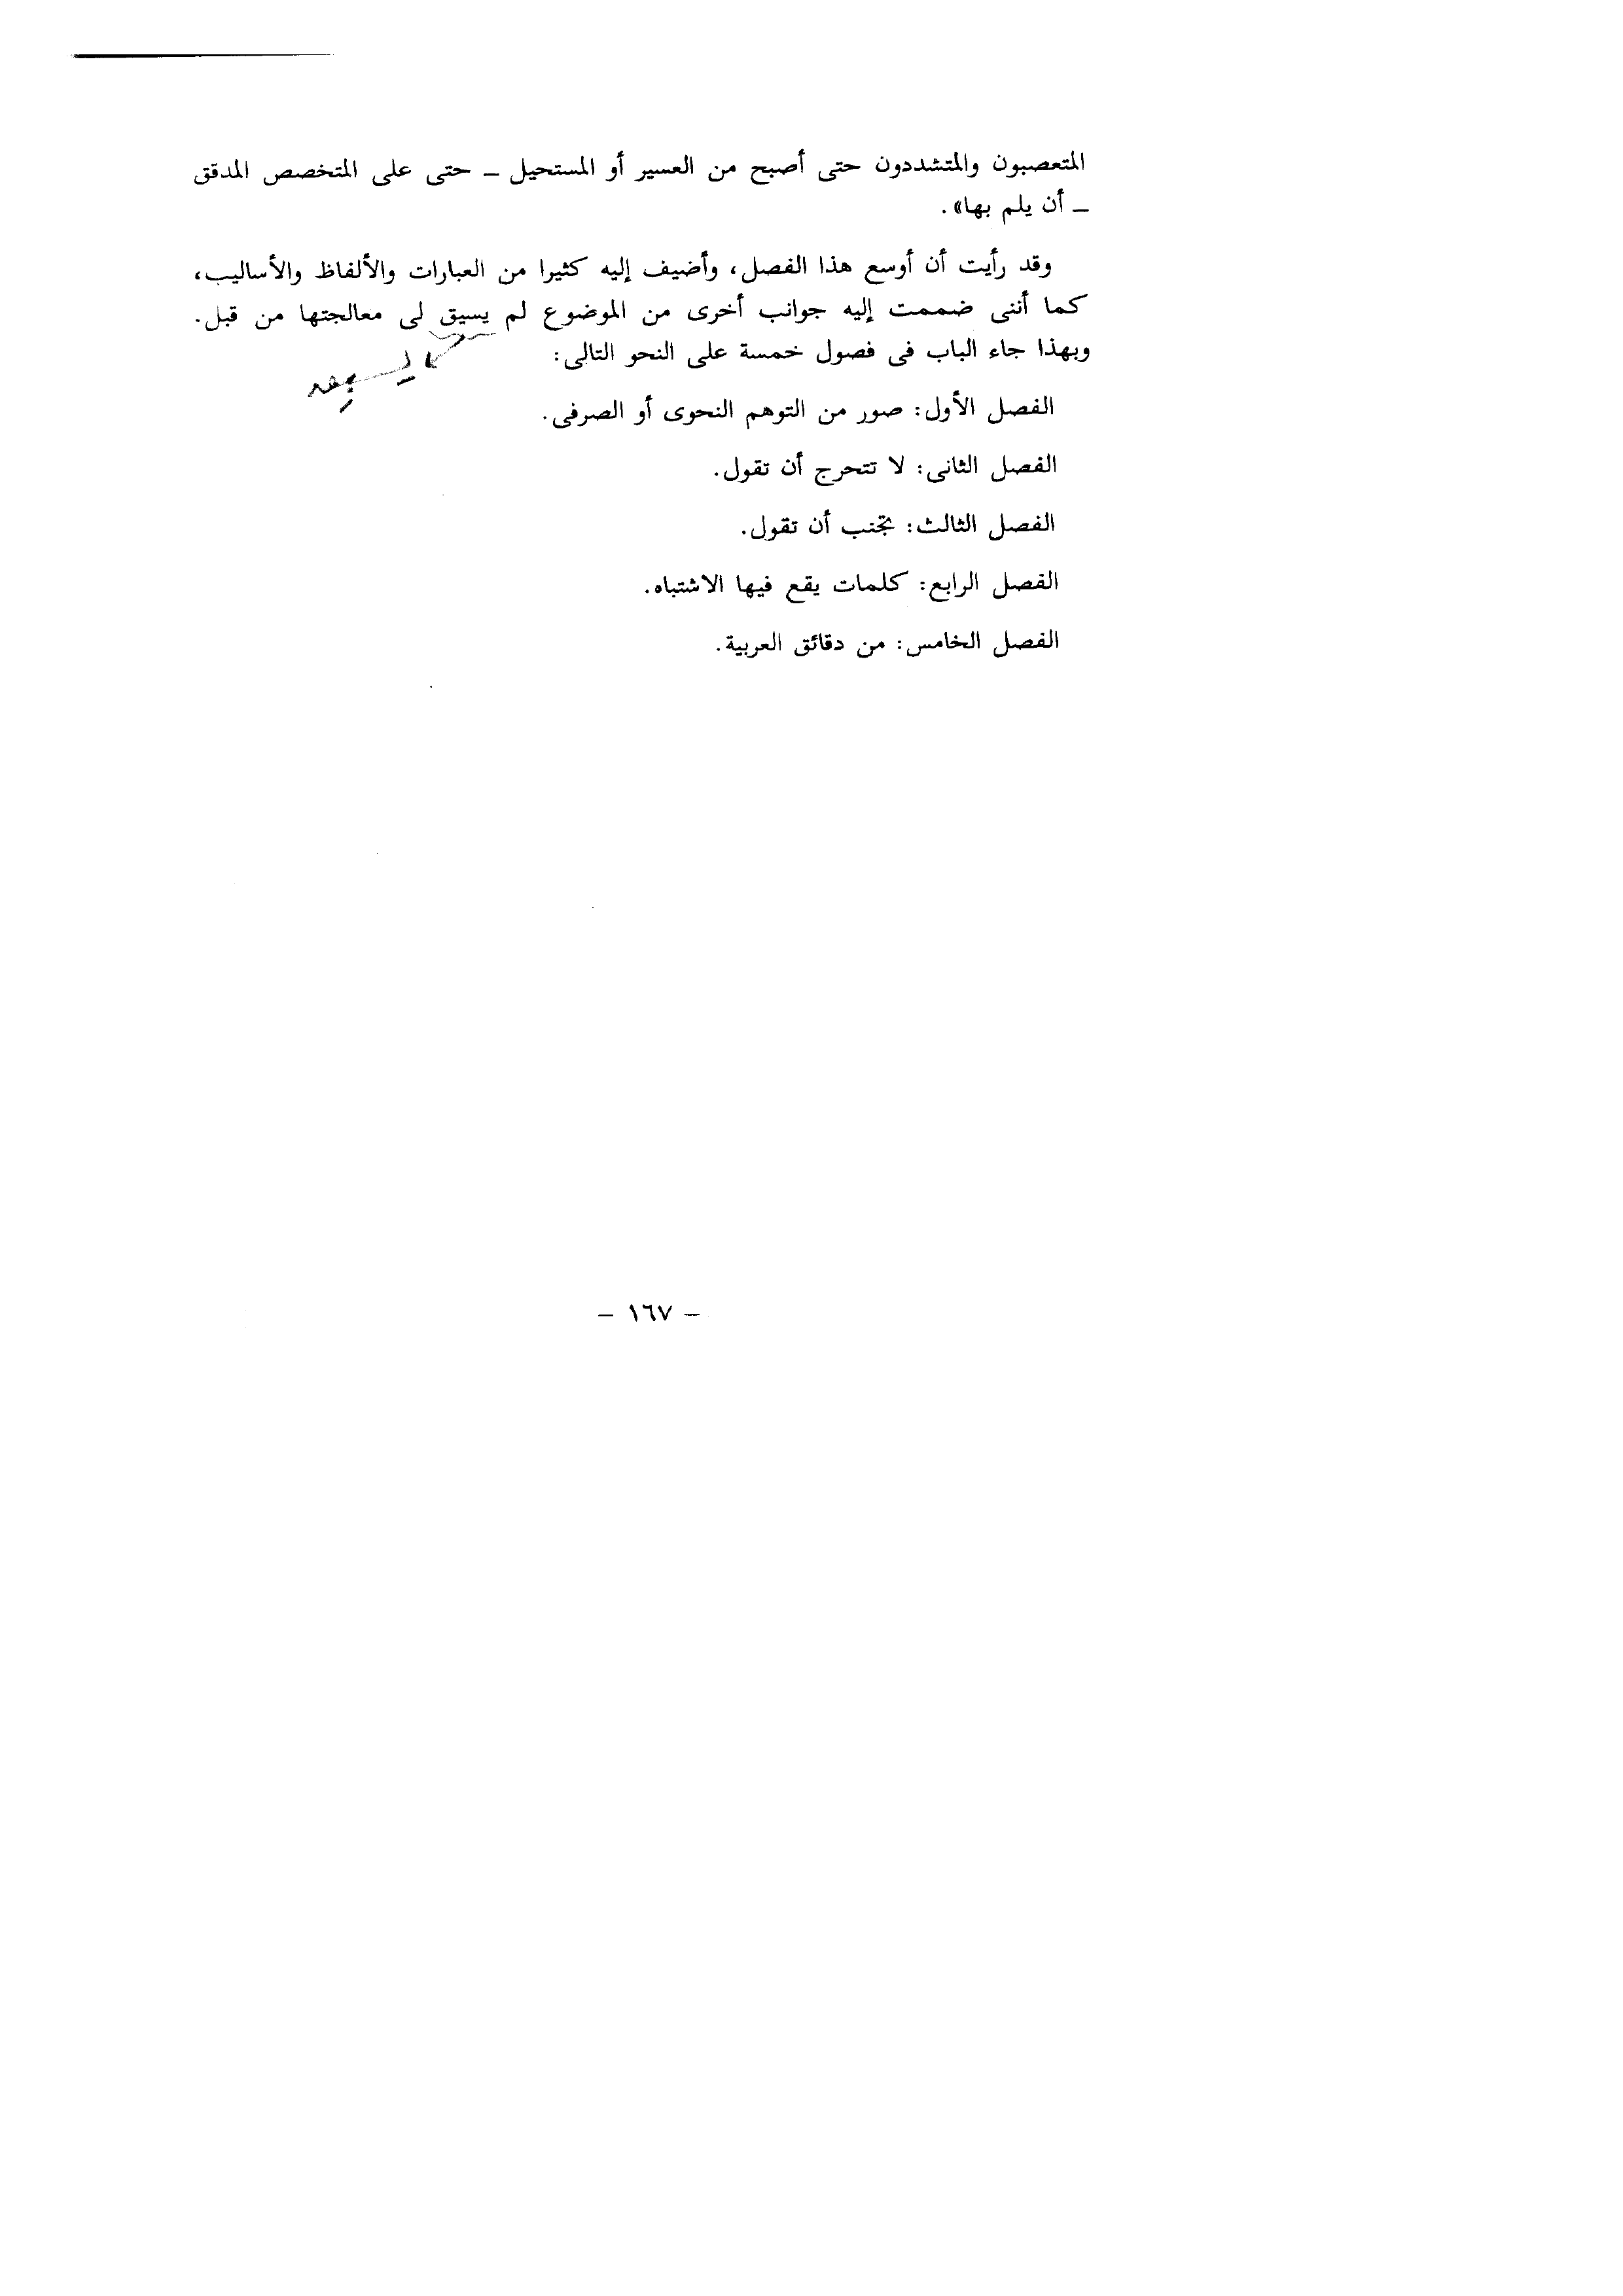 المتعصبون والمتشددون حتى أصبح من العسير أو المستحيل ــ حتى على المتخصص المدقق
ــ أن يلم بها».
وقد رأيت أن أوسع هذا الفصل، وأضيف إليه كثيرا من العبارات والألفاظ والأساليب،
كما أننى ضممت إليه جوانب أخرى من الموضوع لم يسيق لى معالجتها من قبل.
وبهذا جاء الباب فى فصول خمسة على النحو التالى:
الفصل الأول: صور من التوهم النحوى أو الصرفى.
الفصل الثانى: لا تتحرج أن تقول.
الفصل الثالث: تجنب أن تقول.
الفصل الرابع: كلمات يقع فيها الاشتباه.
الفصل الخامس: من دقائق العربية.
– ١٦٧ –